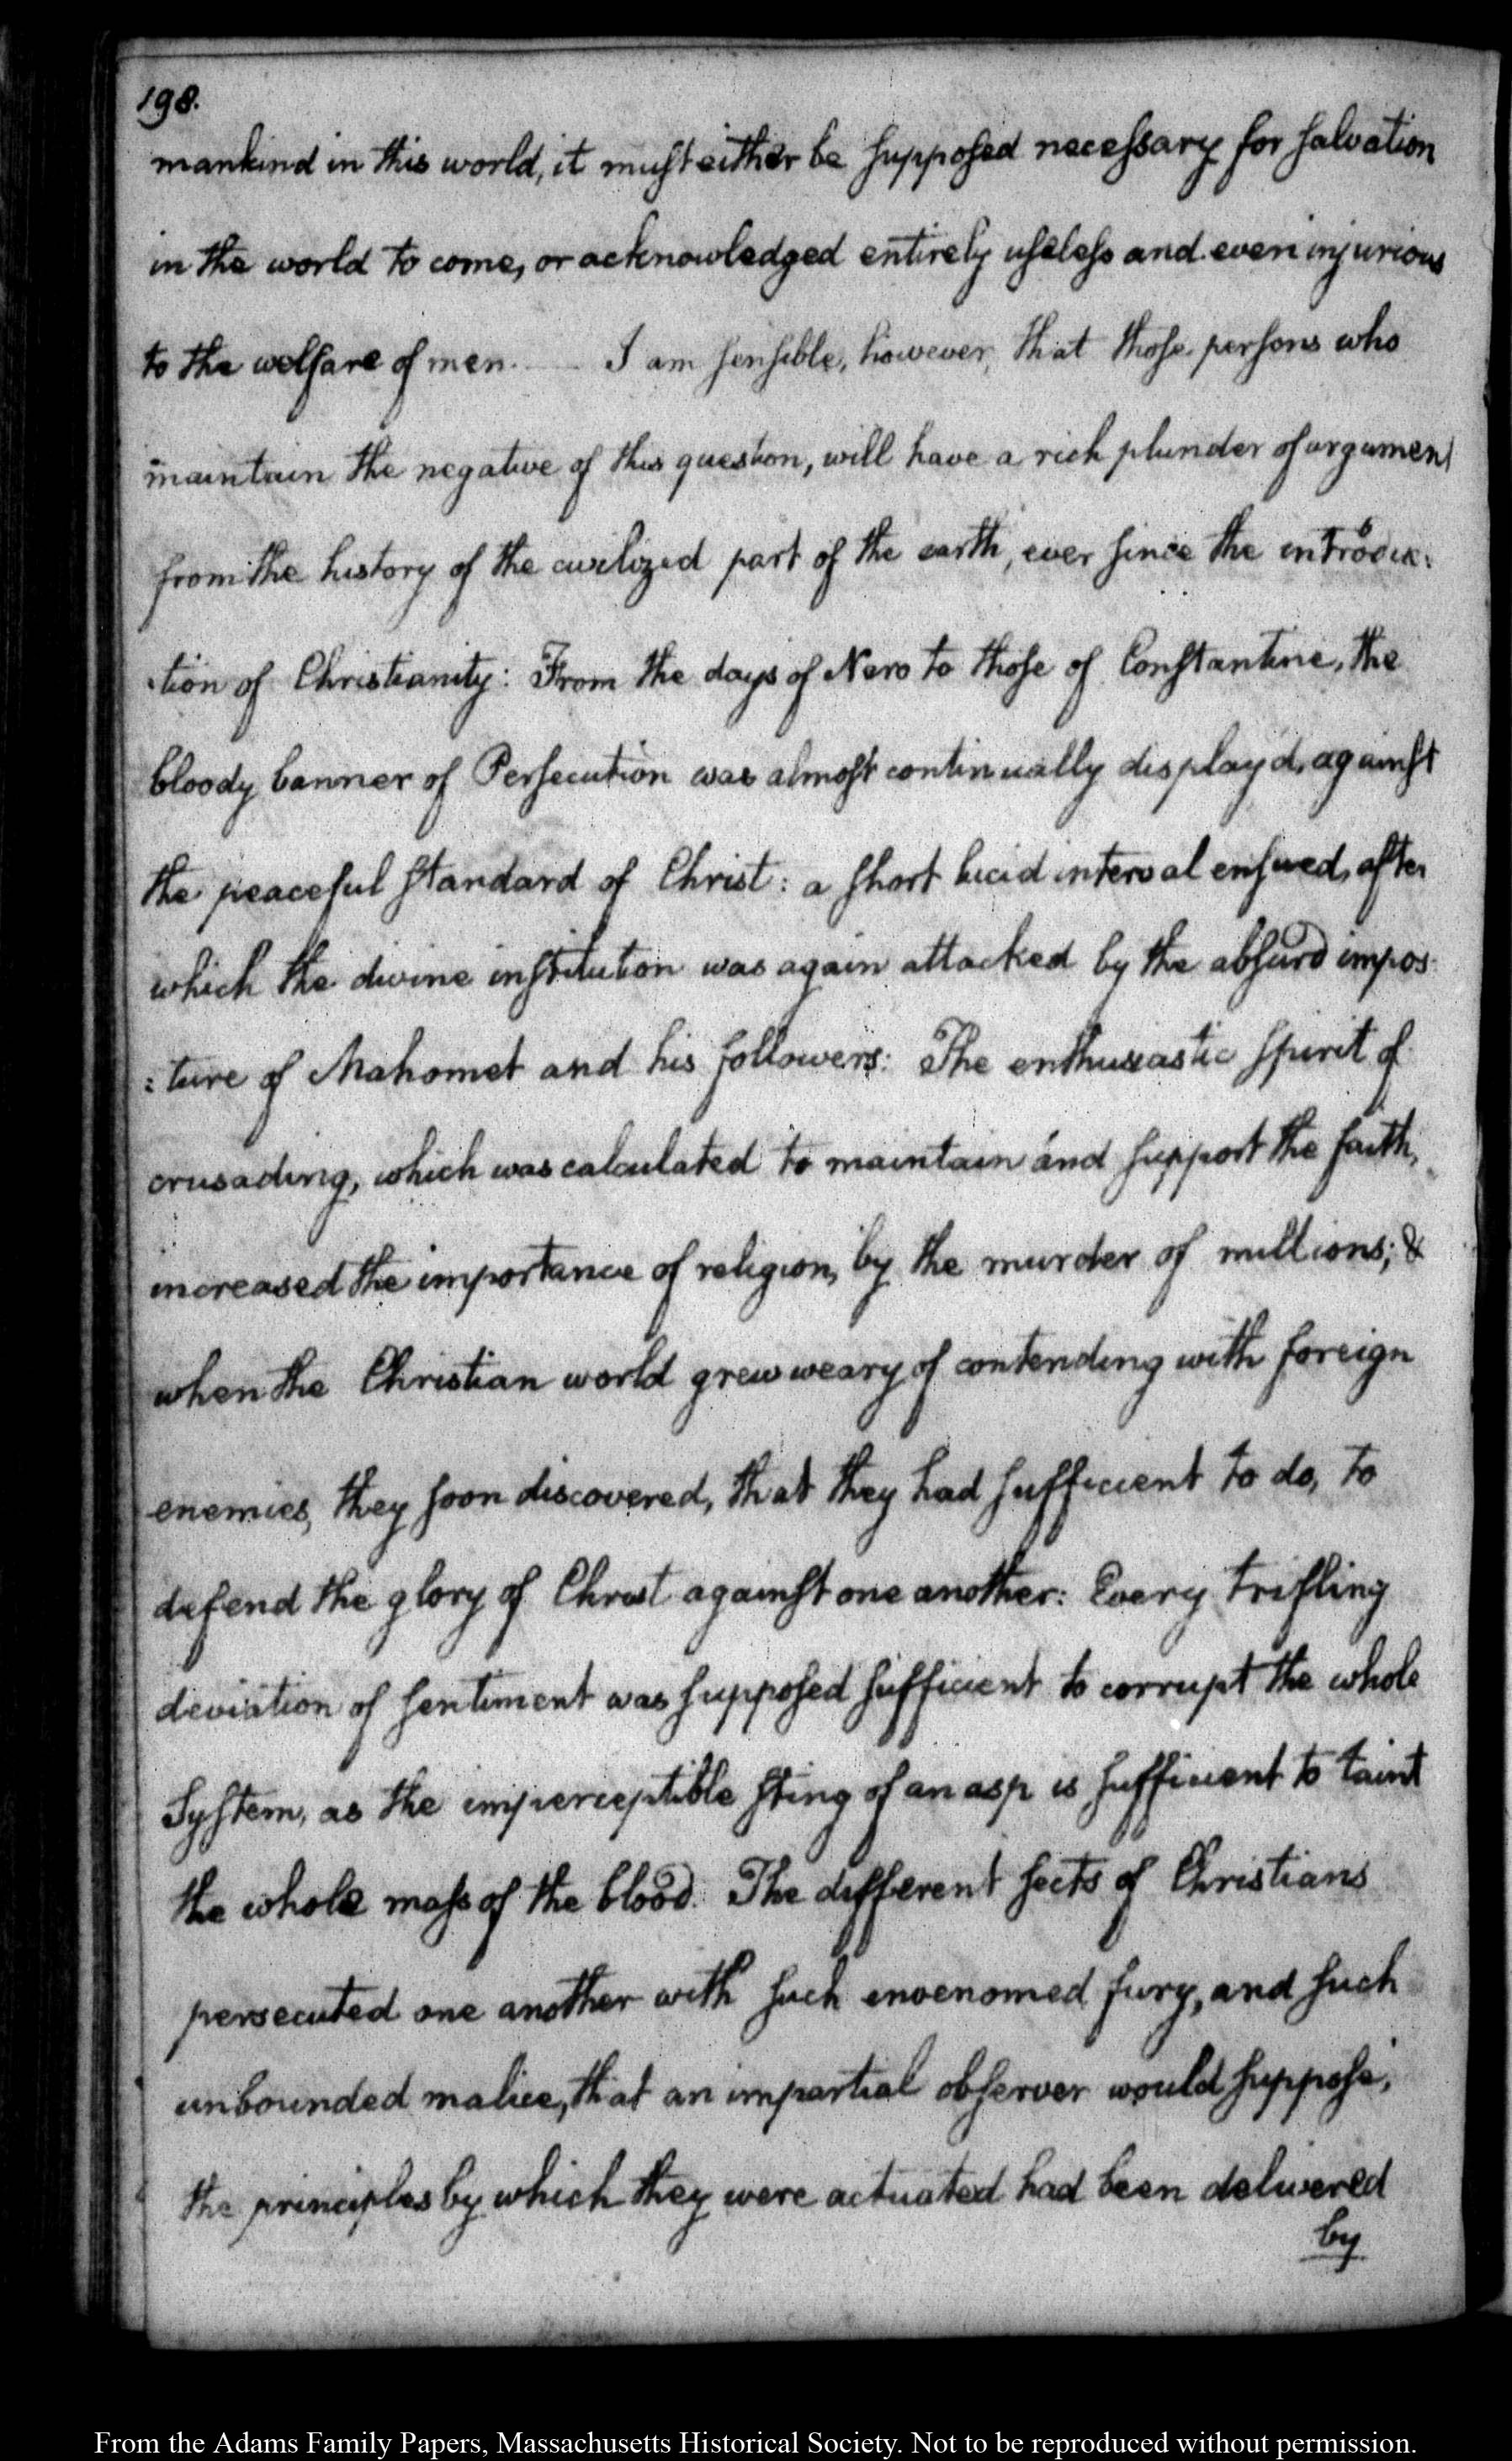 198.
mankind in this world, it must either be supposed necessary for salvation
in the world to come, or acknowledged entirely useless and even injurious
to the welfare of men. — I am sensible, however, that those persons who
maintain the negative of this question, will have a rich plunder of argument
from the history of the civilized part of the earth, ever since the introduc:
:tion of Christianity: From the days of Nero to those of Constantine, the
bloody banner of Persecution was almost continually display'd, against
the peaceful standard of Christ: a short lucid interval ensued, after
which the divine institution was again attacked by the absurd impos:
:ture of Mahomet and his followers: The enthusiastic spirit of
crusading, which was calculated to maintain and support the faith,
increased the importance of religion, by the murder of millions; &
when the Christian world grew weary of contending with foreign
enemies, they soon discovered, that they had sufficient to do, to
defend the glory of Christ against one another: Every trifling
deviation of sentiment was supposed sufficient to corrupt the whole
System, as the imperceptible sting of an asp is sufficient to taint
the whole mass of the blood. The different sects of Christians
persecuted one another with such envenomed fury, and such
unbounded malice, that an impartial observer would suppose,
the principles by which they were actuated had been delivered
by
From the Adams Family Papers, Massachusetts Historical Society. Not to be reproduced without permission.